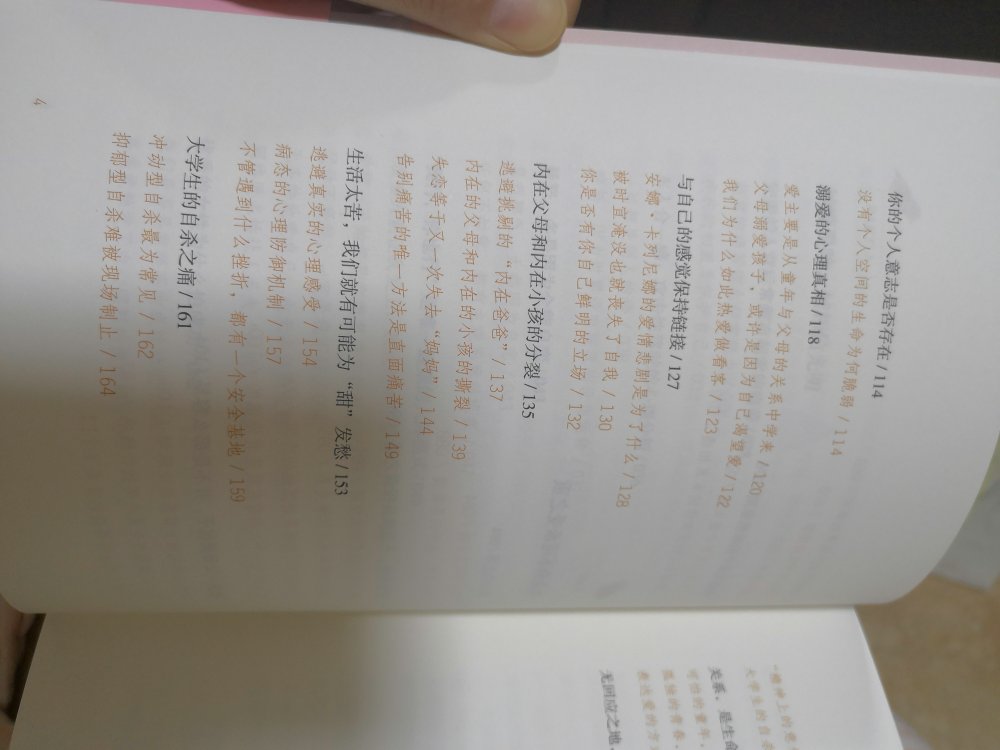 你的个人意志是否存在 / 114
没有个人空间的生命为何脆弱 / 114
溺爱的心理真相 / 118
爱主要是从童年与父母的关系中学来 / 120
父母溺爱孩子，或许是因为自己渴望爱 / 122
我们为什么如此热爱做看客 / 123
与自己的感觉保持链接 / 127
安娜·卡列尼娜的爱情悲剧是为了什么 / 128
被时宜淹没也就丧失了自我 / 130
你是否有你自己鲜明的立场 / 132
内在父母和内在小孩的分裂 / 135
逃避挑剔的“内在爸爸” / 137
内在的父母和内在的小孩的撕裂 / 139
失恋等于又一次失去“妈妈” / 144
告别痛苦的唯一方法是直面痛苦 / 149
生活太苦，我们就有可能为“甜”发愁 / 153
逃避真实的心理感受 / 154
病态的心理防御机制 / 157
不管遇到什么挫折，都有一个安全基地 / 159
大学生的自杀之痛 / 161
冲动型自杀最为常见 / 162
抑郁型自杀难被现场制止 / 164
4
“精神上的
大学生的自
关系，是生命
可怕的童年，
孤独的青春，
无回应之地，